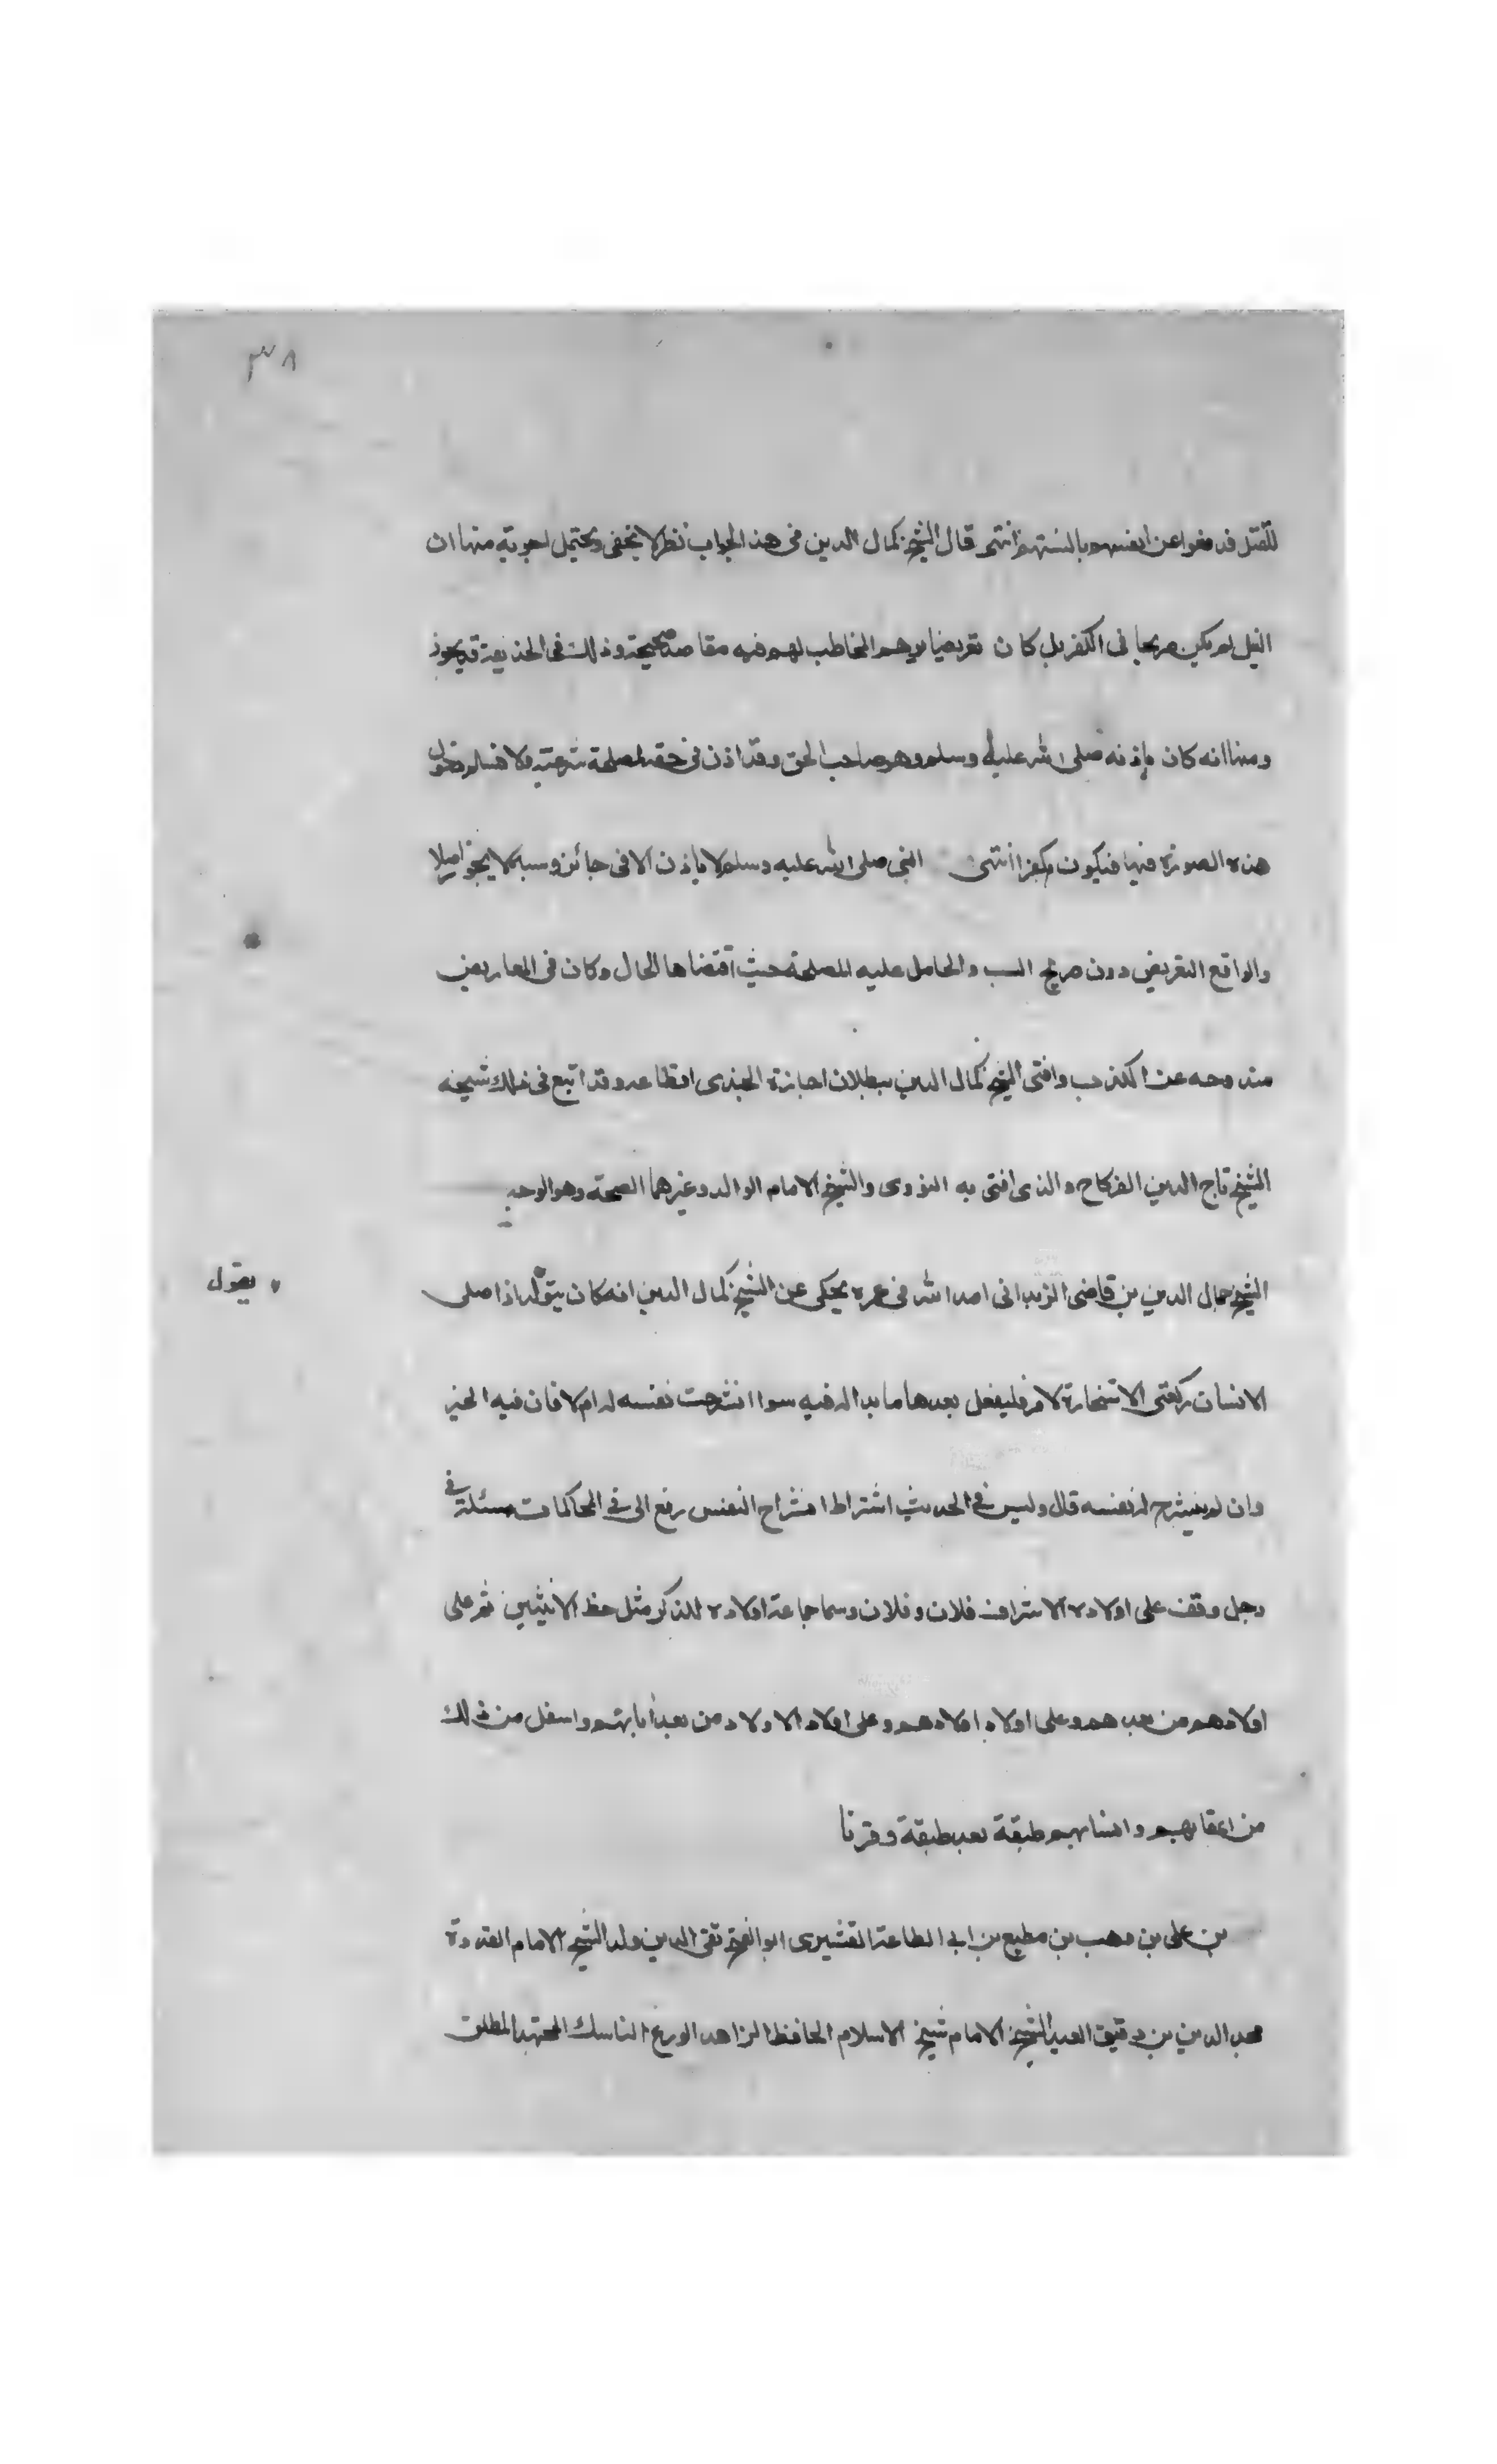 ٣٨
للقتل فدفعوا عن انفسهم بالسنتهم انتهى قال الشيخ كمال الدين فى هذا الجواب نظر لا يخفى ويحتمل اجوبة منها ان
النيل لم يكن صريحا فى الكفر بل كان تعريضا يوهم المخاطب لهم فيه مقاصد صحيحة وذلك فى الخديعة قد يجوز
ومنها انه كان باذنه صلى الله عليه وسلم وهو صاحب الحق وقد اذن فى حقه لمصلحة شرعية ولا نسلم دخول
هذه الصورة فيها فيكون كفرا انتهى النبى صلى الله عليه وسلم لا ياذن الا فى جائز وسبه لا يجوز اصلا
والواقع التعريض دون صريح السب والحامل عليه المصلحة حيث اقتضاها الحال وكان فى المعاريض
مندوحه عن الكذب وافتى الشيخ كمال الدين ببطلان اجازة الجندى اقطاعه وقد اتبع فى ذلك شيخه
الشيخ تاج الدين الفركاح والذى افتى به النووى والشيخ الامام الوالد وغيرهما الصحة وهو الوجه
الشيخ جمال الدين بن قاضى الزبدانى امد الله فى عمره يحكى عن الشيخ كمال الدين انه كان يتولد اذا صلى
يقول
الانسان ركعتى الاستخارة لامر فليفعل بعدها ما بدا له فيه سوا انشرحت نفسه له ام لا فان فيه الخير
وان لم ينشرح له نفسه قال وليس فى الحديث اشتراط انشراح النفس رفع الى فى المحاكمات مسئلة فى
رجل وقف على اولاده الاشراف فلان وفلان وسما جماعة اولاده للذكر مثل حظ الانثيين ثم على
اولادهم من بعدهم وعلى اولاد اولادهم وعلى اولاد الاولاد من بعد ابائهم واسفل من ذلك
من اعقابهم وانسابهم طبقة بعد طبقة وقرنا
بن على بن وهب بن مطيع بن ابى الطاعة القشيرى ابو الفتح تقى الدين ولد الشيخ الامام القدوة
مجد الدين بن دقيق العيد الشيخ الامام شيخ الاسلام الحافظ الزاهد الورع الناسك المجتهد المطلق